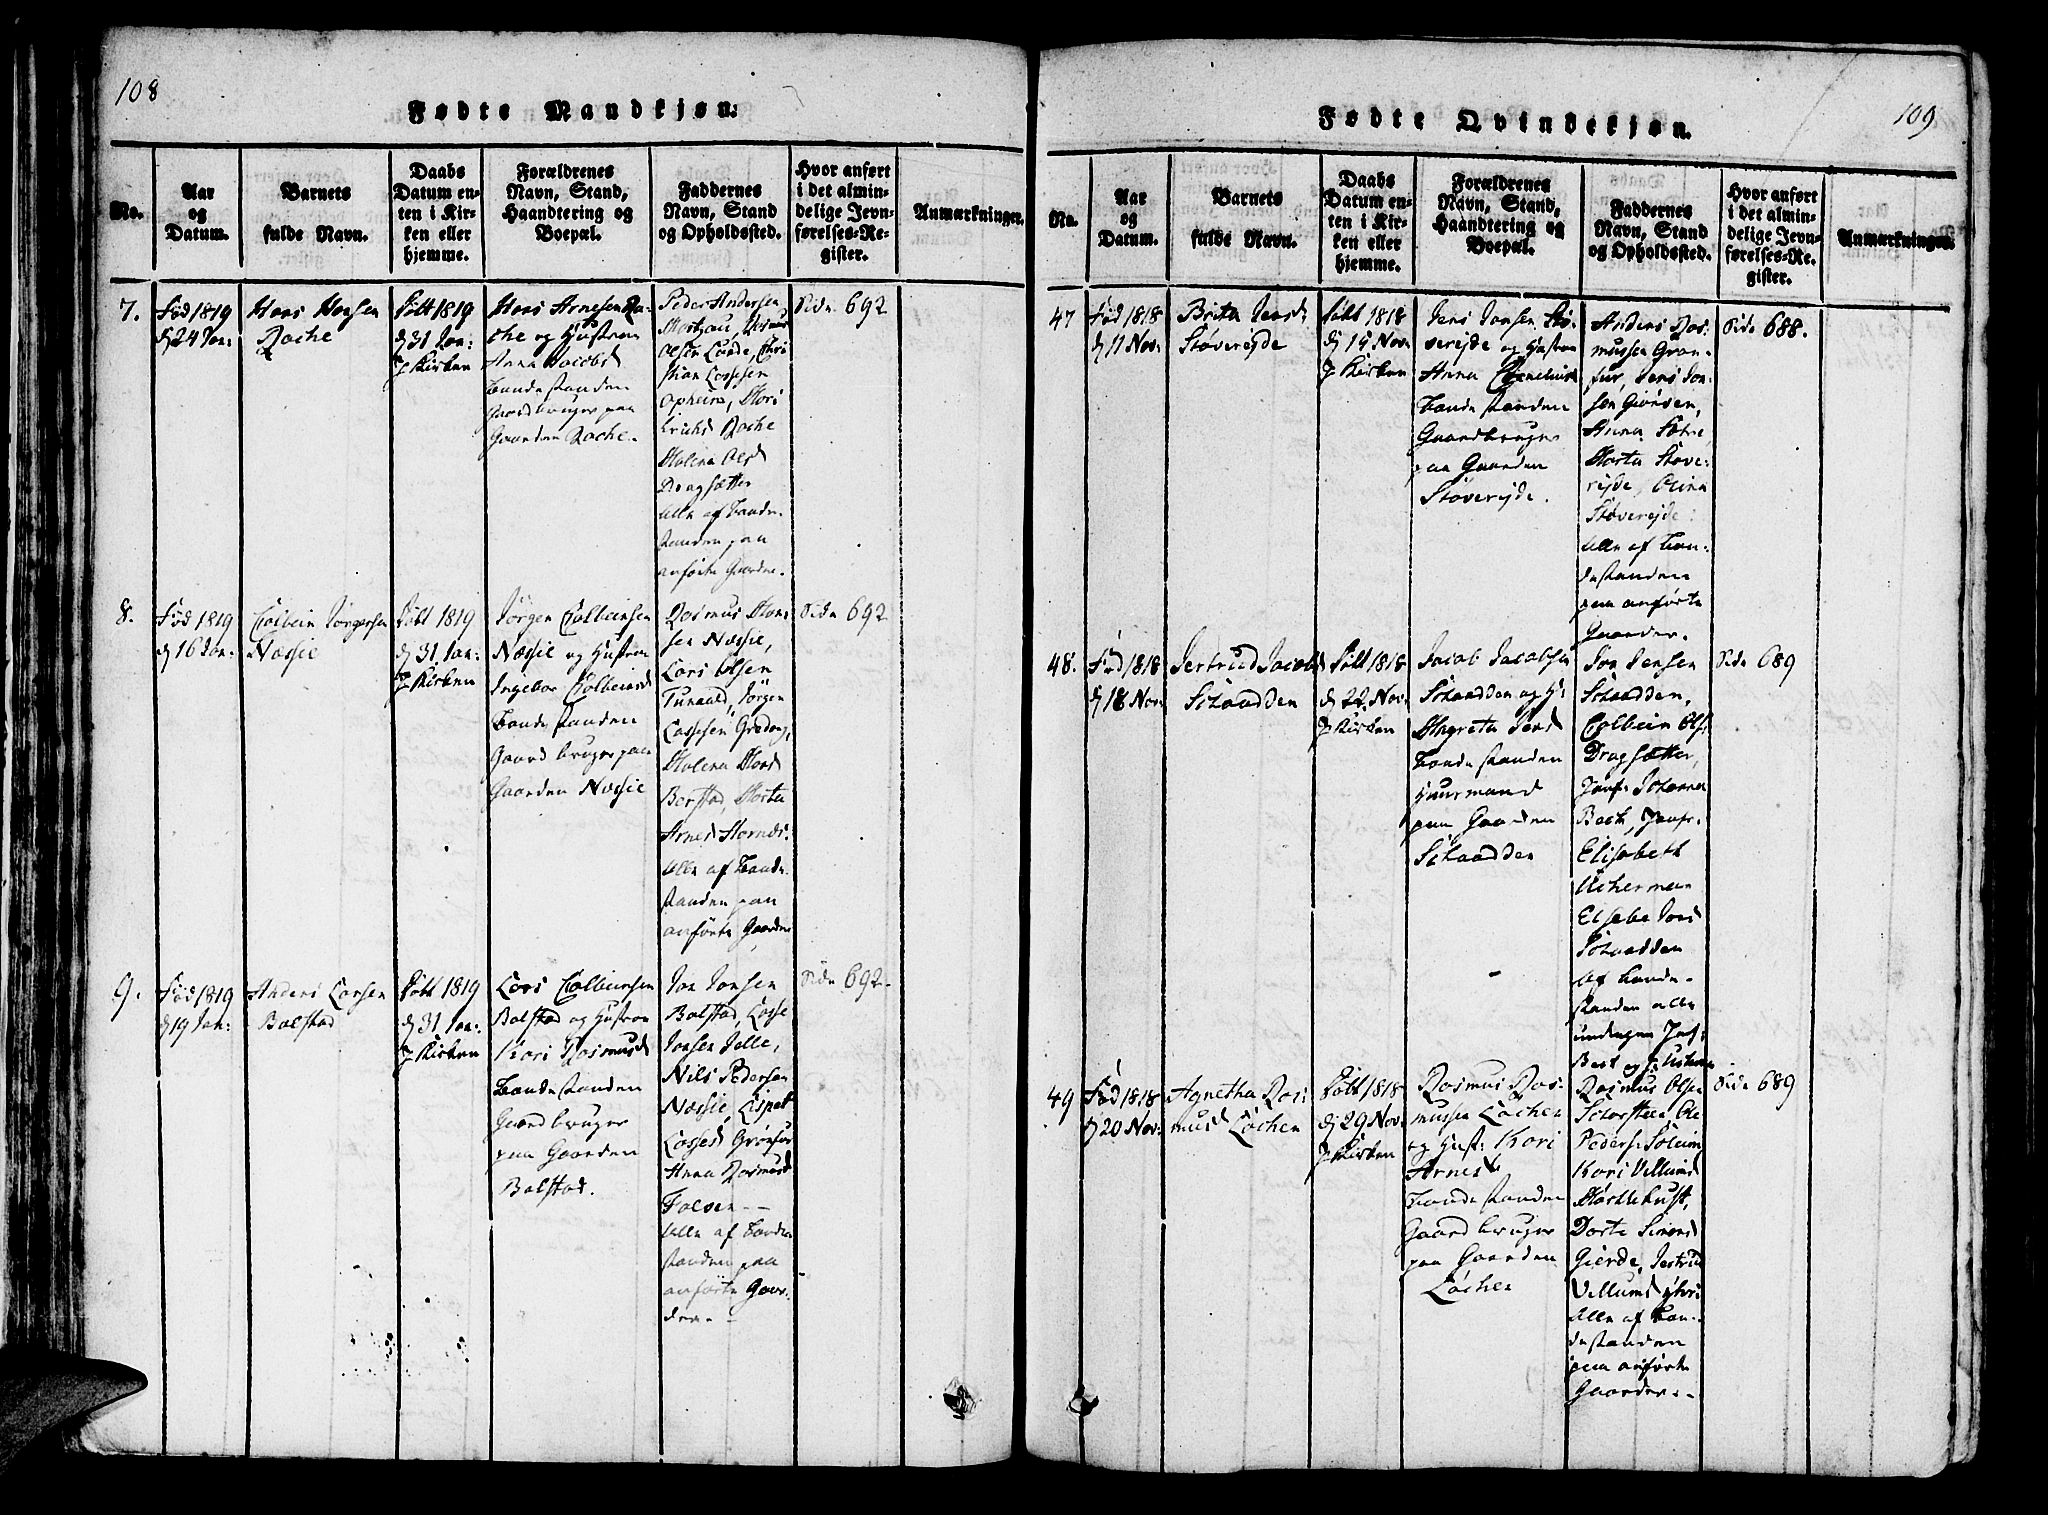 108
Fødte Mandkjøn:
No.
Aar
og
Datum.
Barnets
fulde Navn.
Daabs
Datum en-
ten i Kir-
ken eller
hjemme.
Forældrenes
Navn, Stand,
Haandtering og
Boepæl.
Faddernes
Navn, Stand
og Opholdssted.
Hvor anført
i det almin-
delige Jevn-
førelses-Re-
gister.
Anmærkninger.
7.
Fød 1819
d 24 Jan:
Hans Hansen
Røche
Døbt 1819
d 31 Jan:
J Kirken
Hans Arnesen Rø-
che og Hustroe
Anna Jacobsd
Bondestanden
Gaardbruger paa
Gaarden Røche.
Peder Andersen
Rasmus
Olsen Lunde, Chri
stian Lassesen
Opheim, Mari
Erichsd Røche
Malena Olsd
Dragsætter
Alle af Bonde-
standen paa
anførte Gaarde.
Side 692
8.
Fød 1819
d 16 Jan:
Colbein Jørgensen
Næssie
Døbt 1819
d 31 Jan:
J Kirken
Jørgen Colbeinsen
Næssie og Hustroe
Ingebor Colbeinsd
Bondestanden
Gaardbruger paa
Gaarden Næssie
Rasmus Han-
sen Næssie,
Lars Olsen
Tunold, Jørgen
Lassesen
Malena
Berstad, Marta
Arnesd Hornæs.
Alle af Bonde-
standen paa
anførte Gaarde
Side 692
9.
Fød 1819
d 19 Jan:
Anders Larsen
Bolstad
Døbt 1819
d 31 Jan:
J Kirken
Lars Colbeinsen
Bolstad og Hustroe
Kari Rasmusd
Bondestanden
Gaardbruger
paa Gaarden
Bolstad.
Jon Jonsen
Bolstad, Lasse
Jonsen Jelle,
Nils Pedersen
Næssie, Lispet
Lassesd Grønfur
Anna Rasmusd
Folven --
Alle af Bonde
standen paa
anførte Gaar-
der.-
Side 692.
109
Fødte Qvindekjøn.
No.
Aar
og
Datum.
Barnets
fulde Navn.
Daabs
Datum en-
ten i Kir-
ken eller
hjemme.
Forældrenes
Navn, Stand,
Haandtering og
Boepæl.
Faddernes
Navn, Stand
og Opholdssted.
Hvor anført
i det almin-
delige Jevn-
førelses-Re-
gister.
Anmærkninger.
47
Fød 1818
d 11 Nov:
Brita Jensd
Støvereide
Døbt 1818
d 19 Nov:
J Kirken
Jens Jonsen Stø-
vereide og Hustroe
Anna Corneliusd
Bondestanden
Gaardbruger
paa Gaarden
Støvereide.
Anders Ras-
mussen Grøn-
fur, Jens Jon-
sen
Anna
Marta Støve-
reide, Olina
Støvereide:
Alle af Bon-
destanden
paa anførte
Gaarder.
Side 688.
48.
Fød 1818
d 18 Nov:
Jertrud Jacobsd
Schaadden
Døbt 1818
d 22 Nov:
J Kirken
Jacob Jacobsen
Schaadden og H:
Margreta Jensd
Bondestanden
Huusmand
paa Gaarden
Schaadden
Jon Jensen
Schaadden,
Colbein Ols:
Dragsætter,
Jomf: Johanna
Bech, Jomfr.
Elisabeth
Ucherman
Elsebe
Schaadden
Af Bonde-
standen alle
undtagen Jomf:
Side 689
49
Fød 1818
d 20 Nov:
Agnetha Ras:
musd Løchen
Døbt 1818
d 29 Nov:
J Kirken
Rasmus Ras-
mussen Løchen
og Hust: Kari
Arnesd
Bondestanden
Gaardbruger
paa Gaarden
Løchen
Rasmus Olsen
Schorsteen Ole
Peders: Soleim
Kari Villumsd
Mæchlehust,
Dorte Simonsd
Gierde, Jertrud
Villumsd
Alle af Bon-
destanden
paa anførte
Gaarder.-
Side 689